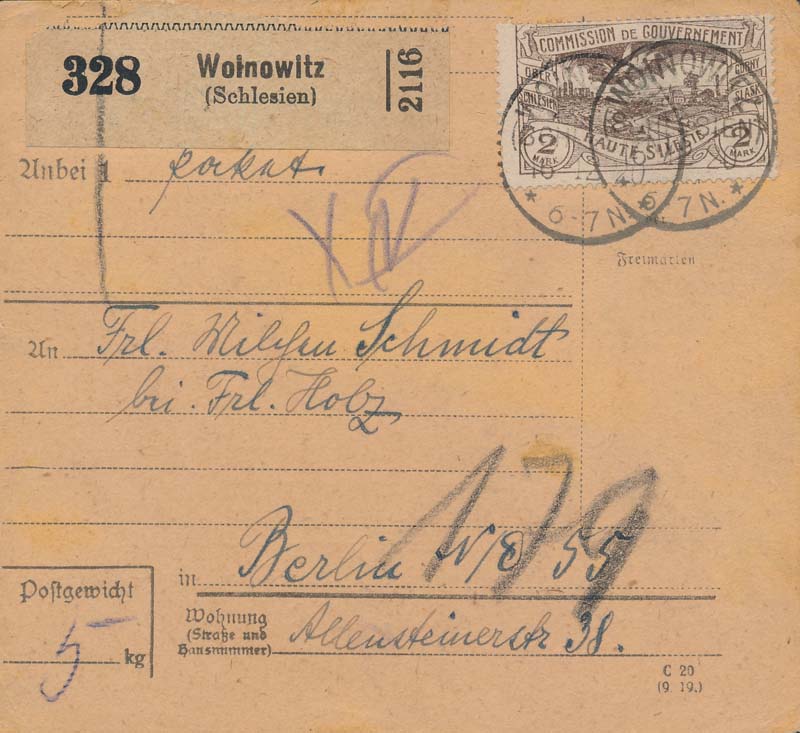 328 Woinowitz
(Schlesien)
2116
COMMISSION DE GOUVERNEMENT
OBER SCHLESIEN
GÓRNY ŚLĄSK
HAUTE SILÉSIE
2 MARK
2 MARK
* 6-7 N. *
6-7 N. *
Anbei 1 Paket
Freimarken
An Frl. Schmidt
bei Frl. Holz
179
in Berlin NO 55
Wohnung
(Straße und
Hausnummer)
Allensteinerstr 38.
Postgewicht
5 kg
C 20
(9. 19.)